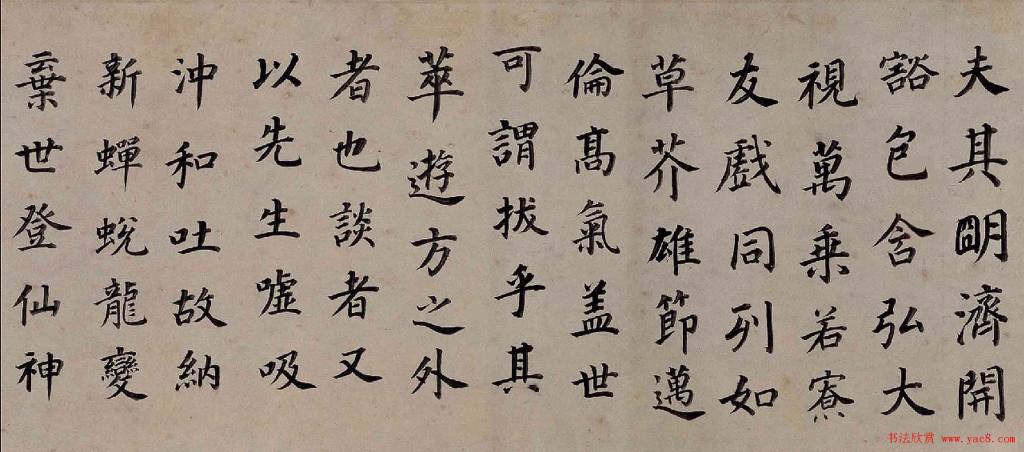 夫其明濟開
豁包含弘大
視萬乘若寮
友戲同列如
草芥雄節邁
倫高氣盖世
可謂拔乎其
萃遊方之外
者也談者又
以先生嘘吸
沖和吐故納
新蟬蛻龍變
棄世登仙神
书法欣赏 www.yac8.com